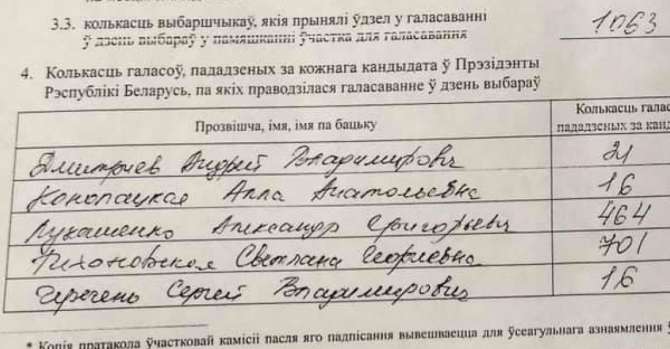 3.3. колькасць выбаршчыкаў, якія прынялі ўдзел у галасаванні
ў дзень выбараў у памяшканні ўчастка для галасавання
1063
4. Колькасць галасоў, пададзеных за кожнага кандыдата ў Прэзідэнты
Рэспублікі Беларусь, па якіх праводзілася галасаванне ў дзень выбараў
Прозвішча, імя, імя па бацьку
Колькасць галас
пададзеных за канд
Дмитриев Андрей Владимирович
Канопацкая Анна Анатольевна 16
Лукашенко Александр Григорьевич 464
Тихоновская Светлана Георгиевна 701
Черечень Сергей Владимирович 16
* Копія пратакола ўчастковай камісіі пасля яго падпісання вывешваецца для ўсеагульнага азнаямлення ў